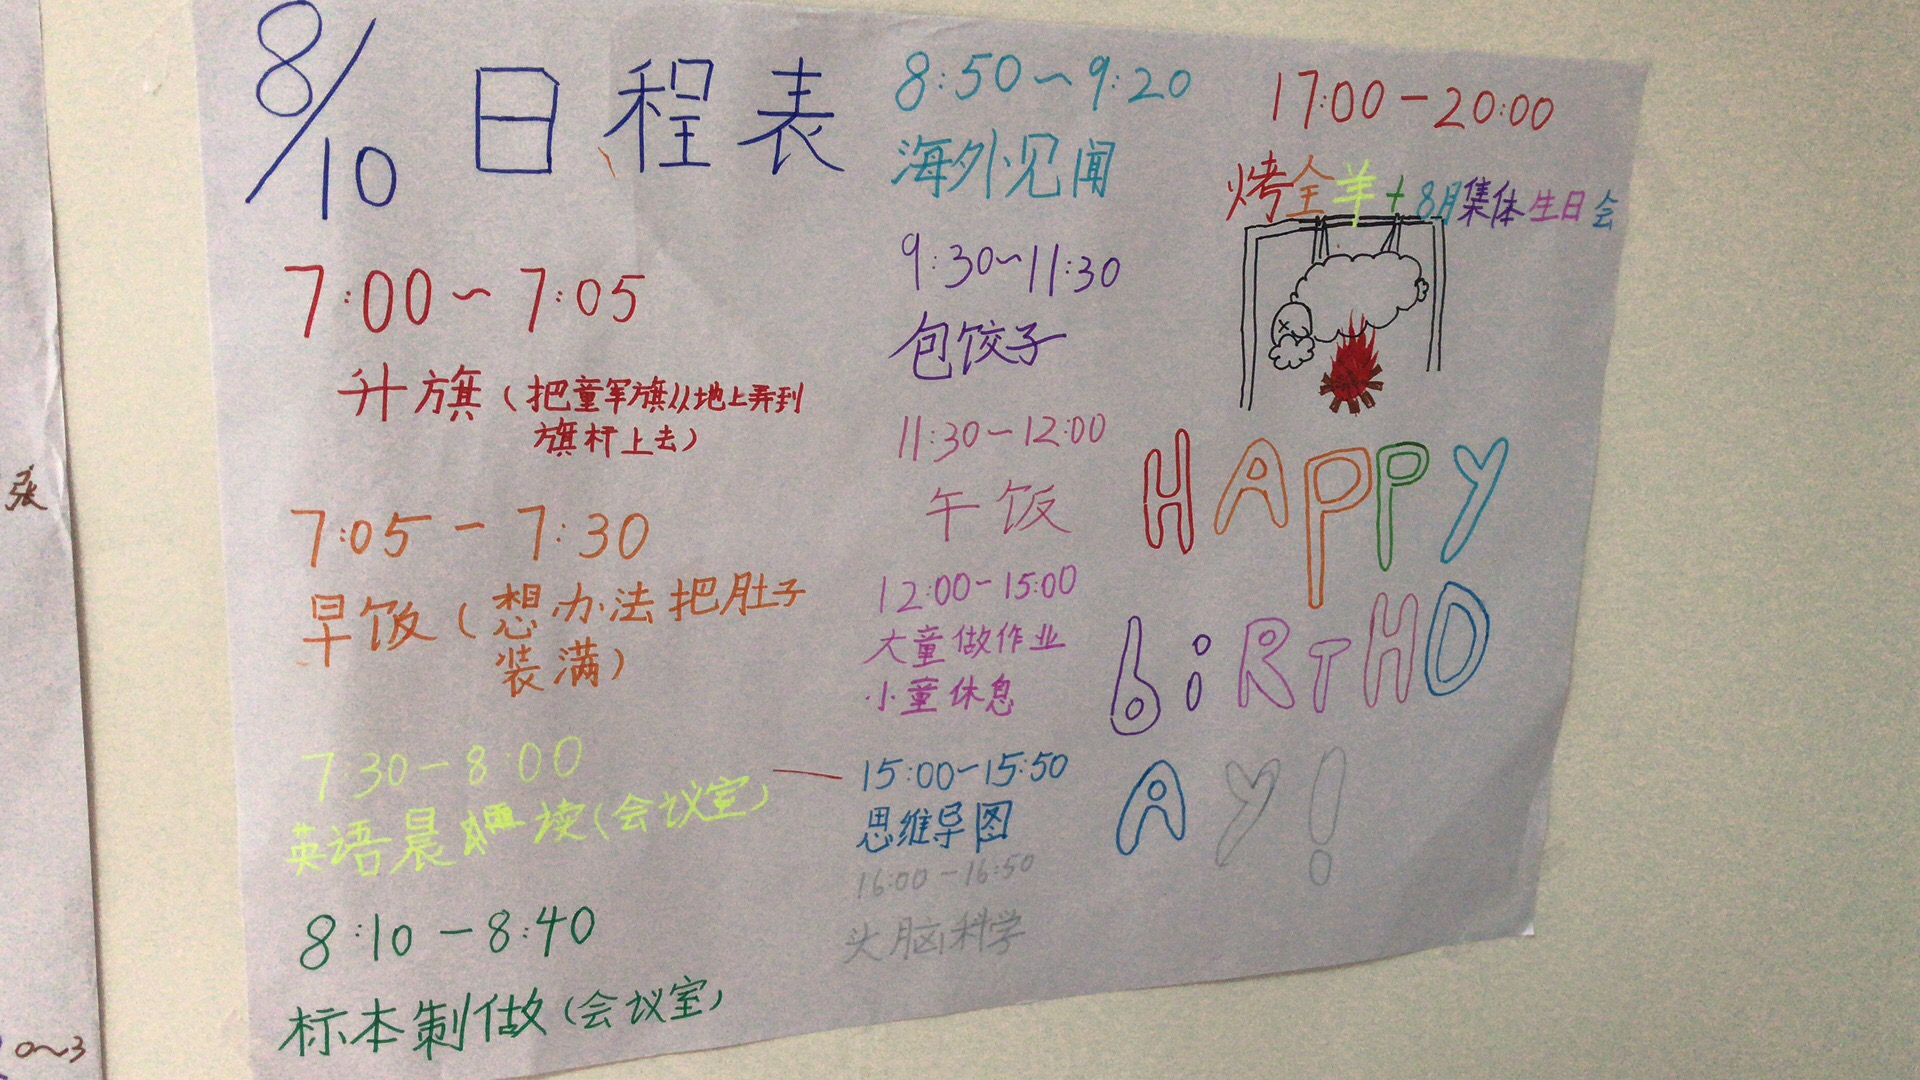 8/10 日程表
7:00～7:05
升旗（把童军旗从地上弄到
旗杆上去）
7:05－7:30
早饭（想办法把肚子
装满）
7:30－8:00
英语晨读（会议室）
8:10－8:40
标本制做（会议室）
8:50～9:20
海外见闻
9:30～11:30
包饺子
11:30－12:00
午饭
12:00－15:00
大童做作业
小童休息
15:00－15:50
思维导图
16:00－16:50
头脑科学
17:00－20:00
烤全羊+8月集体生日会
HAPPY
biRTHD
AY!
张
0～3